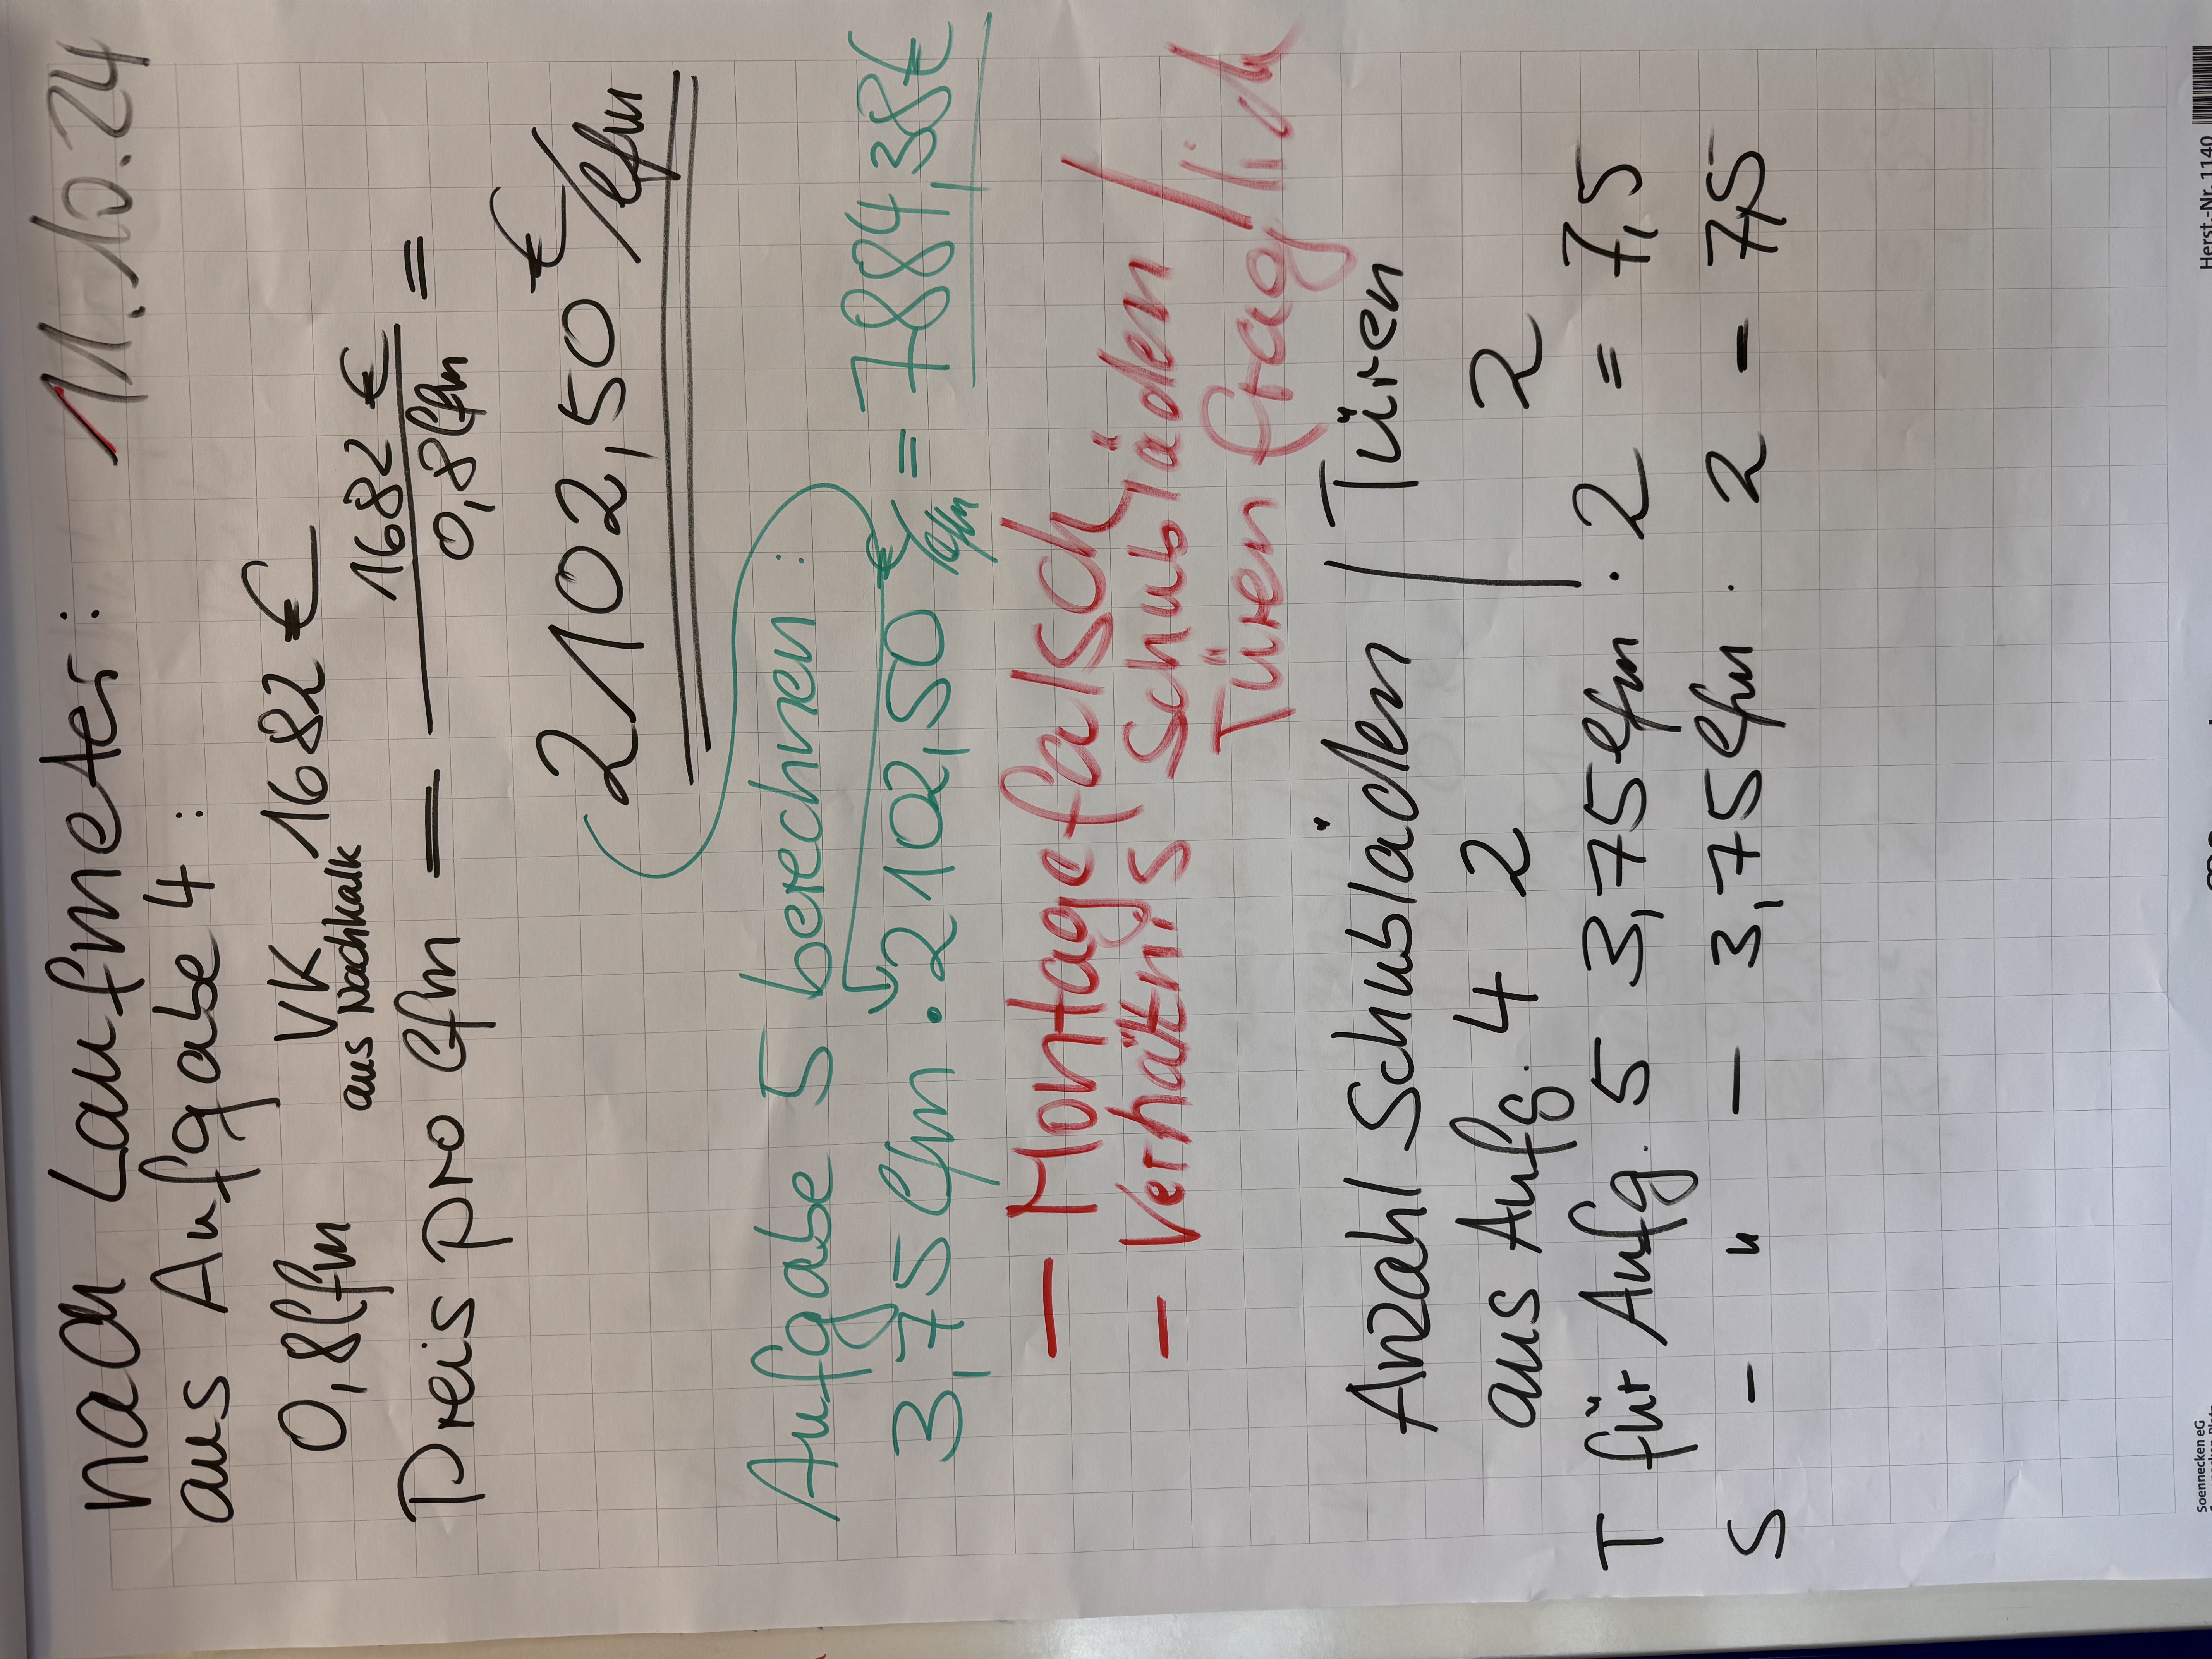 nach Laufmeter: 11.10.24
aus Aufgabe 4:
0,8lfm VK 1682 €
aus Nachkalk
Preis pro lfm = 1682 € / 0,8lfm =
2102,50 €/lfm
Aufgabe 5 berechnen:
3,75 lfm · 2102,50 €/lfm = 7884,38€
– Montage falsch
– Verhältnis Schubläden /
Türen fraglich
Anzahl Schubläden | Türen
aus Aufg. 4 2 | 2
T für Aufg. 5 3,75lfm · 2 = 7,5
S – " – 3,75lfm · 2 = 7,5
Soennecken eG
Herst.-Nr. 1140